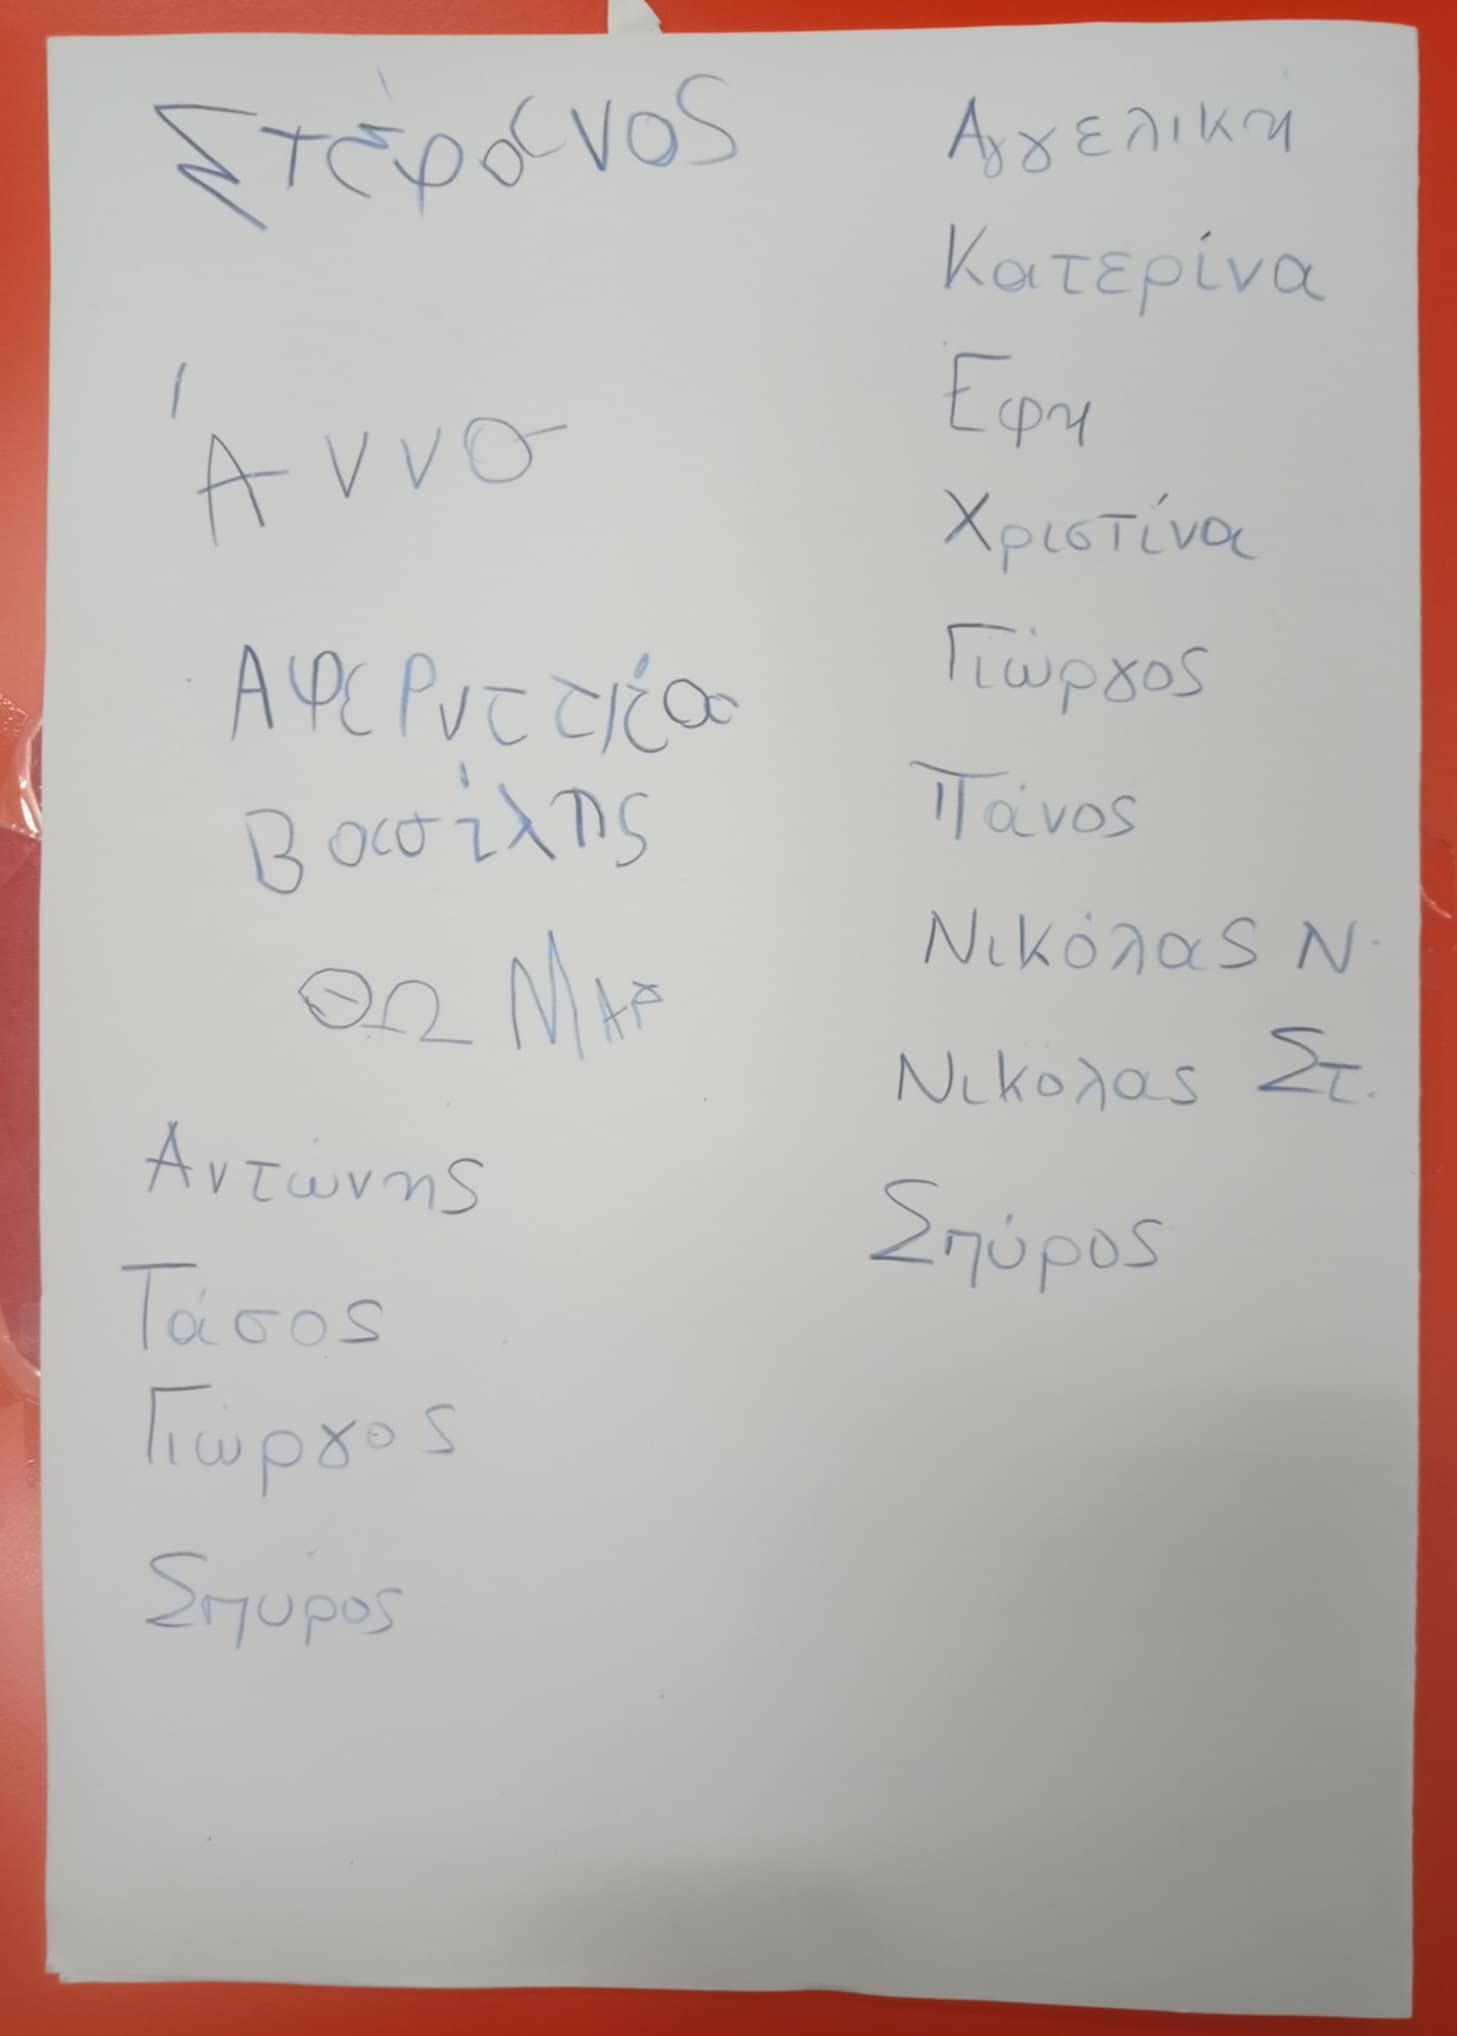 Στέφανος
Άννα
Βασίλης
ΘΩΜΑΡ
Αντώνης
Τάσος
Γιώργος
Σπύρος
Αγγελικη
Κατερίνα
Εφη
Χριστίνα
Γιώργος
Πάνος
Νικόλας Ν.
Νικόλας Στ.
Σπύρος